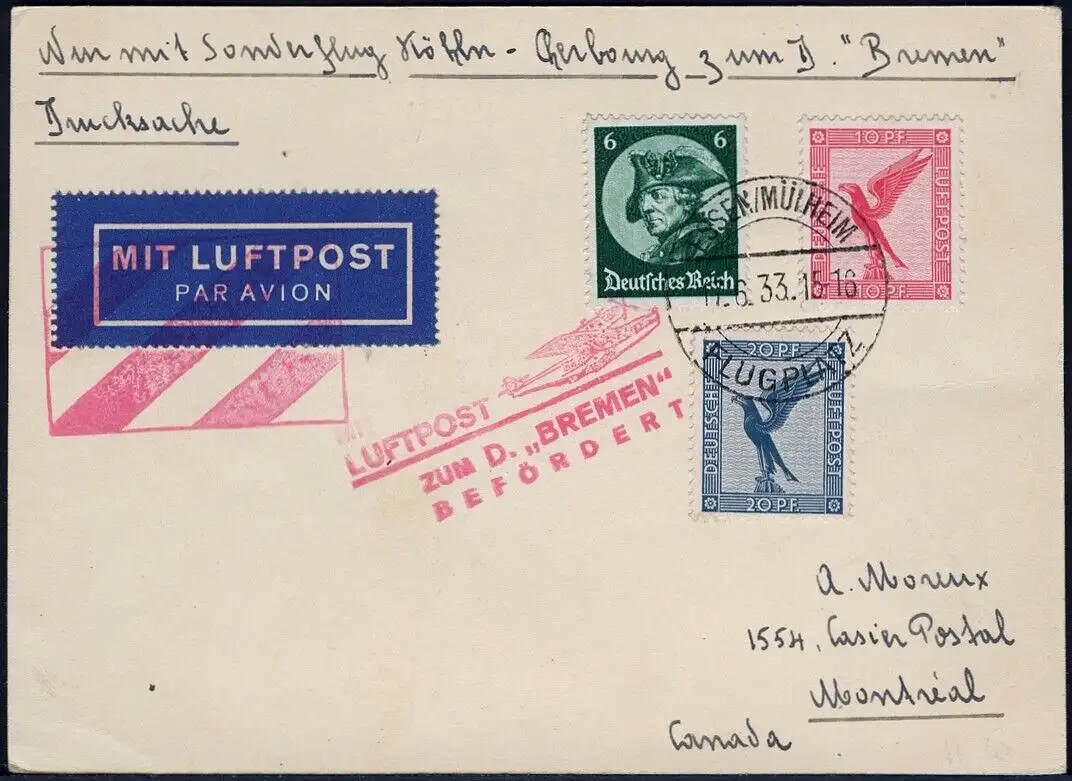 Nur mit Sonderflug Köhln - Cherbourg zum D. "Bremen"
Drucksache
MIT LUFTPOST
PAR AVION
6 6
Deutsches Reich
10 PF.
DEUTSCHE
LUFTPOST
10 PF.
ESSEN/MÜLHEIM
.6.33.15-16
FLUGPLATZ
20 PF.
DEUTSCHE
LUFTPOST
20 PF.
MIT
LUFTPOST
ZUM D. „BREMEN"
BEFÖRDERT
A. Moreux
1554, Casier Postal
Montréal
Canada